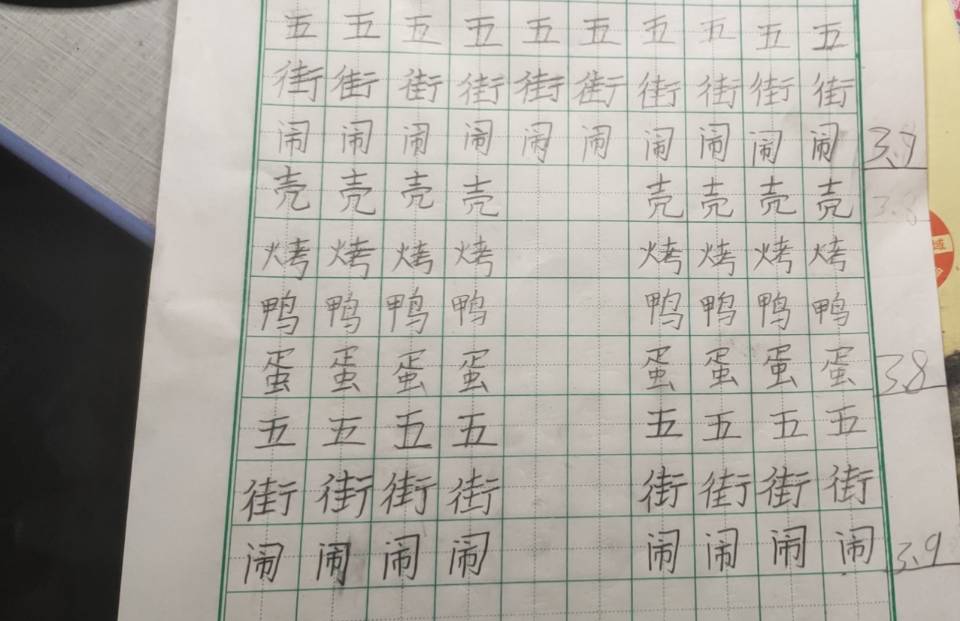 五五五五五五五五五五
街街街街街街街街街街
闹闹闹闹闹闹闹闹闹闹 3.7
壳壳壳壳 壳壳壳壳 3.8
烤烤烤烤 烤烤烤烤
鸭鸭鸭鸭 鸭鸭鸭鸭
蛋蛋蛋蛋 蛋蛋蛋蛋 3.8
五五五五 五五五五
街街街街 街街街街
闹闹闹闹 闹闹闹闹 3.9